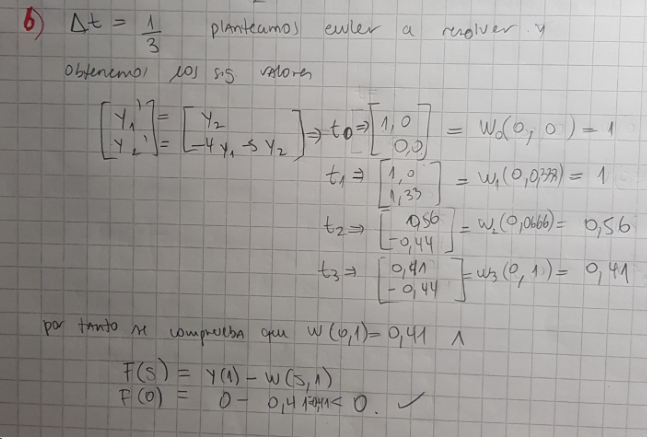 b) Δt = 1/3 planteamos euler a resolver y
obtenemos los sig valores
[y₁' y₂'] = [y₂ -4y₁ -5y₂] ⇒ t₀ ⇒ [1,0 0,0] = W₀(0, 0) = 1
t₁ ⇒ [1,0 1,33] = W₁(0,0333) = 1
t₂ ⇒ [0,56 -0,44] = W₂(0,0666) = 0,56
t₃ ⇒ [0,41 -0,44] = W₃(0, 1) = 0,41
por tanto se comprueba que W(0,1) = 0,41 ∧
F(s) = Y(1) - W(s,1)
F(0) = 0 - 0,41 < 0. ✓